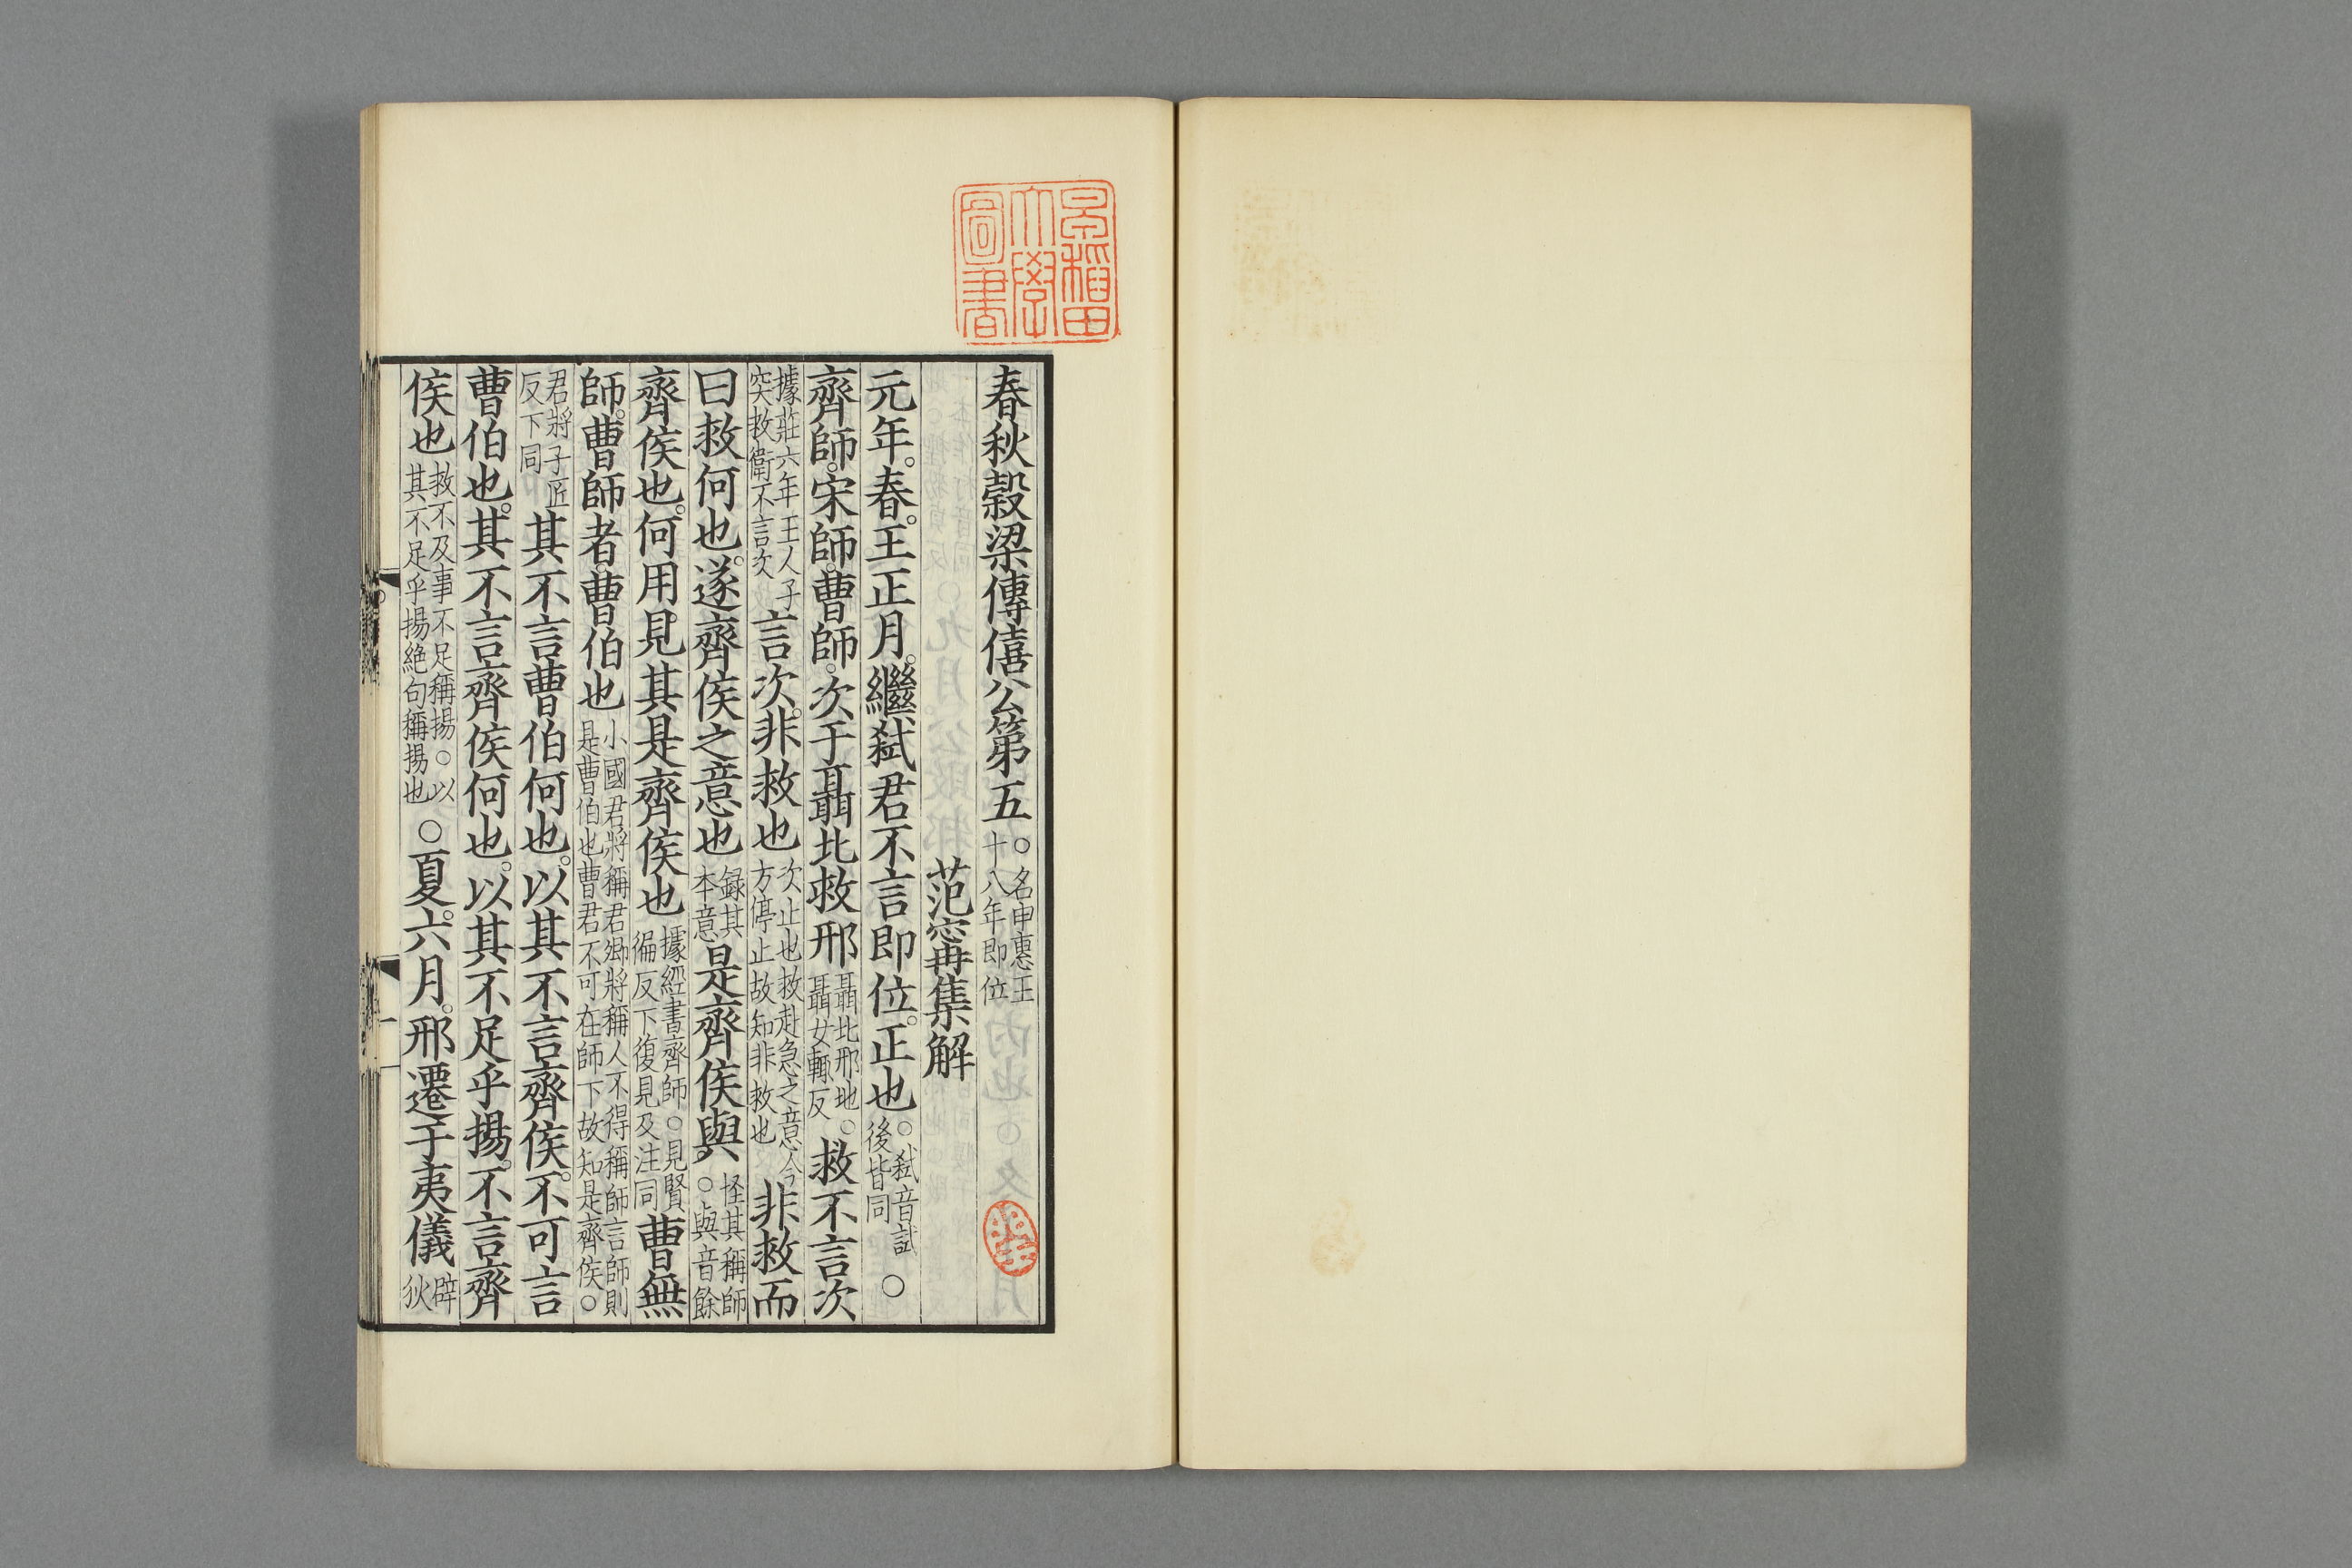 早稲田大學圖書
春秋穀梁傳僖公第五○名申惠王十八年即位
范甯集解
元年。春。王正月。繼弑君不言即位。正也○弑音試後皆同○
齊師。宋師。曹師。次于聶北救邢聶北邢地。○聶女輒反救不言次
據莊六年王人子突救衛不言次言次。非救也次止也救赴急之意今方停止故知非救也非救而
曰救何也。遂齊侯之意也録其本意是齊侯與。怪其稱師○與音餘
齊侯也。何用見其是齊侯也據經書齊師。○見賢徧反下復見及注同曹無
師。曹師者。曹伯也小國君將稱君卿將稱人不得稱師言師則是曹伯也曹君不可在師下故知是齊侯○
君將子匠反下同其不言曹伯何也。以其不言齊侯。不可言
曹伯也。其不言齊侯何也。以其不足乎揚。不言齊
侯也救不及事不足稱揚。○以其不足乎揚絶句稱揚也○夏。六月。邢遷于夷儀辟狄